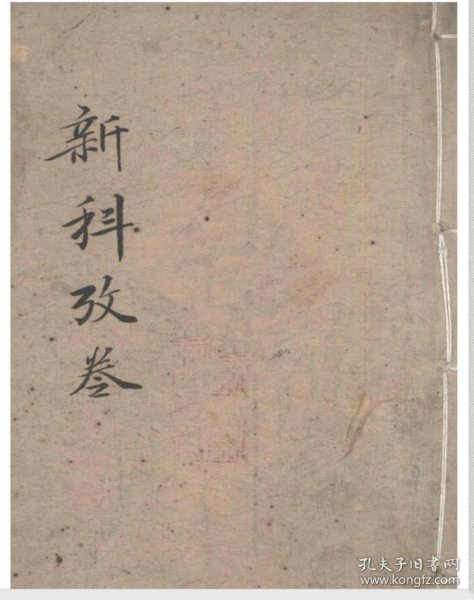 新科攷卷
孔夫子旧书网
www.kongfz.com